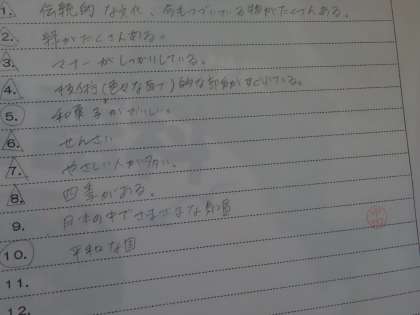 1. 伝統的な文化、今もつづいている物がたくさんある。
2. 緑がたくさんある。
3. マナーがしっかりしている。
4. 技術(色々な面で)的な部分が
5. 和菓子がおいしい。
6. せんさい
7. やさしい人が多い。
8. 四季がある。
9. 日本の中でさまざまな気温
10. 平和な国
11.
12.